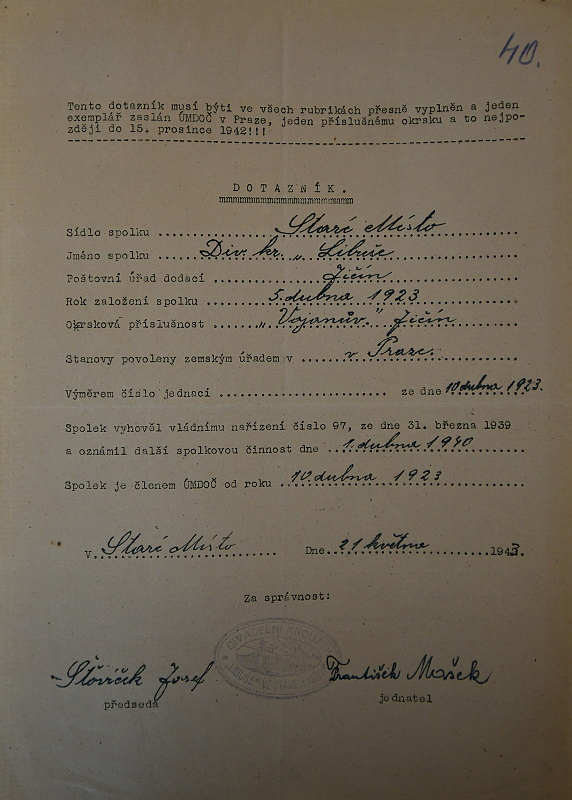 40.
Tento dotazník musí býti ve všech rubrikách přesně vyplněn a jeden
exemplář zaslán ÚMDOČ v Praze, jeden příslušnému okrsku a to nejpo-
zději do 15. prosince 1942!!!
DOTAZNÍK.
Sídlo spolku Staré Místo
Jméno spolku Div. kr. „Libuše
Poštovní úřad dodací Jičín
Rok založení spolku 5. dubna 1923.
Okrsková příslušnost „Vojanův" Jičín
Stanovy povoleny zemským úřadem v v Praze.
Výměrem číslo jednací ze dne 10 dubna 1923.
Spolek vyhověl vládnímu nařízení číslo 97, ze dne 31. března 1939
a oznámil další spolkovou činnost dne 1. dubna 1940
Spolek je členem ÚMDOČ od roku 10. dubna 1923
V. Staré Místo Dne 21 května 1943.
Za správnost:
DIVADELNÍ KROUŽEK
Josef František Mašek
předseda jednatel